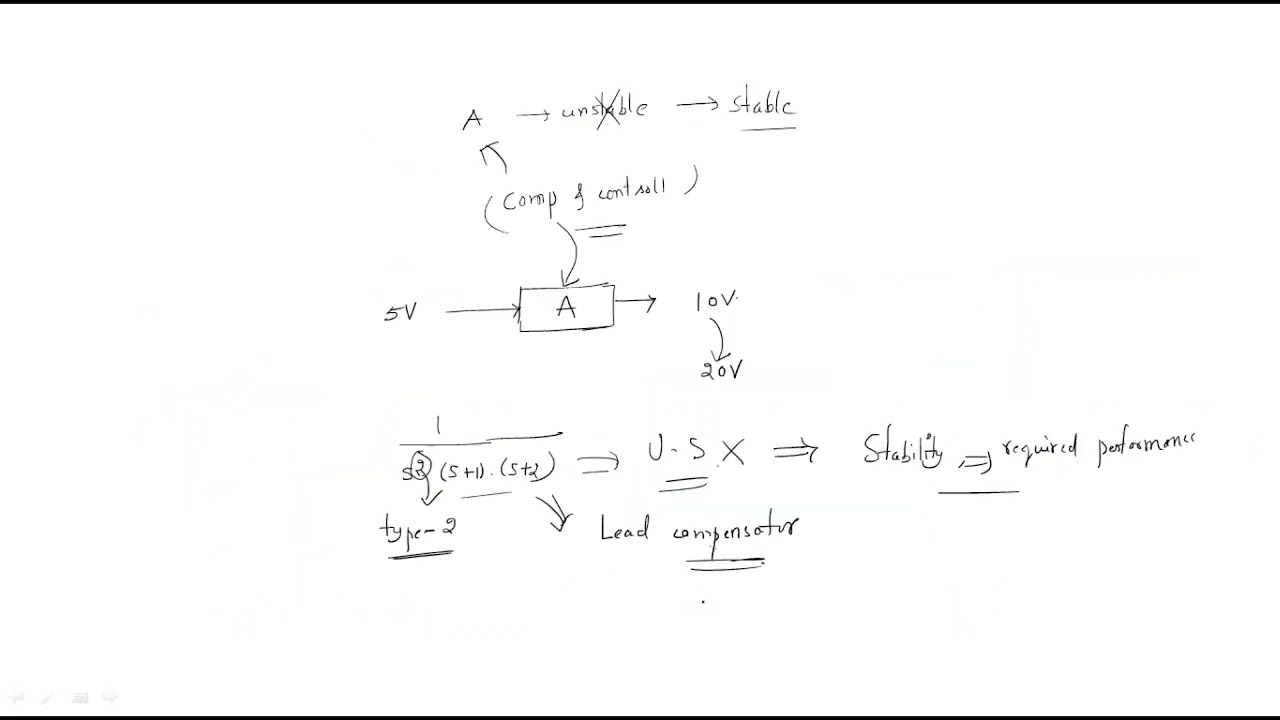 A → unstable → stable
(Comp & controll)
5V → A → 10V
20V
1
s2 (s+1).(s+2) ⇒ U-S X ⇒ Stability ⇒ required performance
type-2 Lead compensator